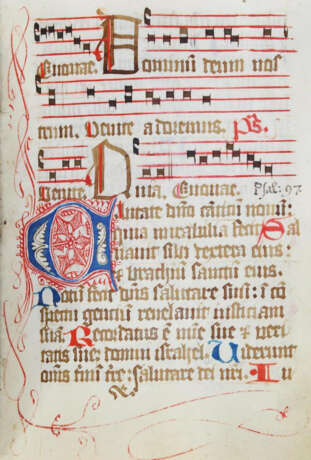 Euouae. Dominum deum nos
trum. Venite adoremus. Ps.
Venite Omnia. Euouae. Psal: 97.
Cantate dn̄o canticū nouū:
quia mirabilia fecit Sal
uauit sibi dextera eius:
et brachiū sanctū eius.
Notū fecit dn̄s salutare suū: ī cō
spectu gentiū reuelauit iusticiam
suā Recordatus ē mīe sue et veri
tatis sue: domui israhel. Viderunt
om̄s tīni tr̄e: salutare dei nr̄i. Iu